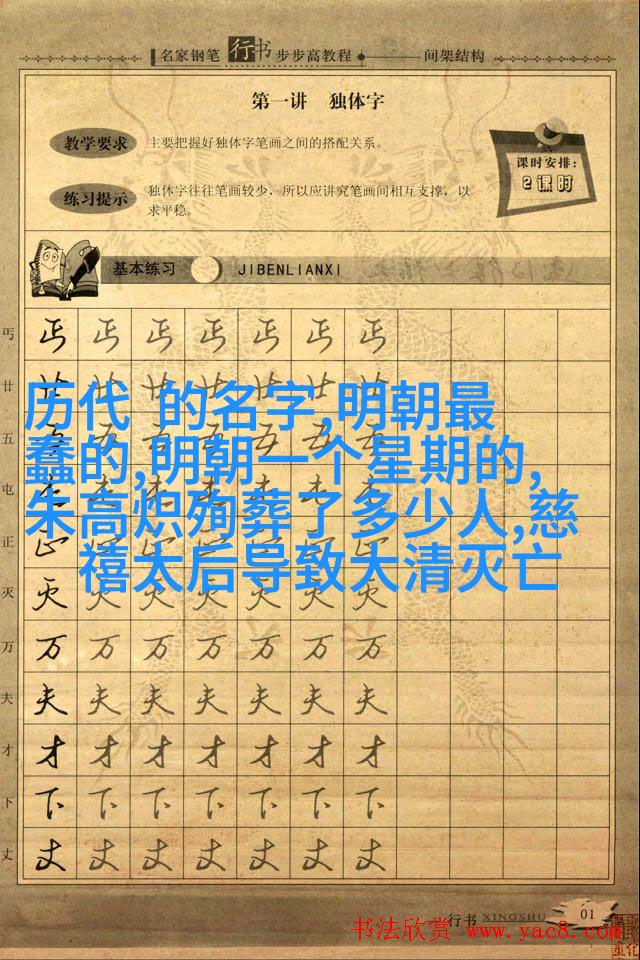 名家钢笔 行书 步步高教程 间架结构
第一讲 独体字
教学要求 主要把握好独体字笔画之间的搭配关系。
课时安排：
2课时
练习提示 独体字往往笔画较少，所以应讲究笔画间相互支撑，以
求平稳。
基本练习 JIBENLIANXI
丐 丐 丐 丐 丐 丐 丐 丐
廿 廿 廿 廿 廿 廿 廿 廿
历代 的名字,明朝最
蠢的,明朝一个星期的,
朱高炽殉葬了多少人,慈
禧太后导致大清灭亡
五 五 五 五 五 五 五 五
屯
正
灭 灭 灭 灭 灭 灭 灭 灭
万 万 万 万 万 万 万 万
夫 夫 夫 夫 夫 夫 夫 夫
才 才 才 才 才 才 才 才
下 下 下 下 下 下 下 下
丈 丈 丈 丈 丈 丈 丈 丈
行书 XINGSHU 01
书法欣赏 www.yac8.com